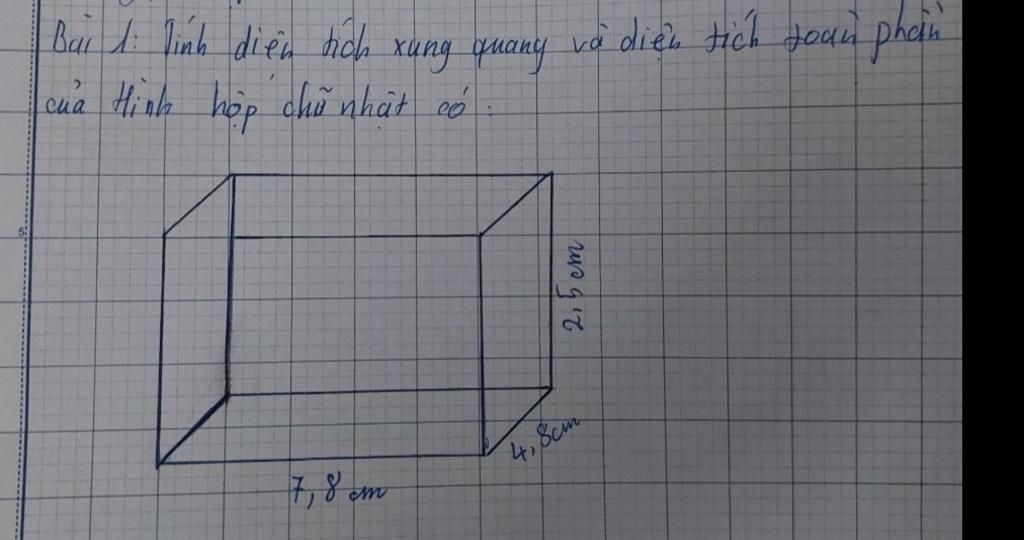 Bài 1: Tính diện tích xung quang và diện tích toàn phần
của Hình hộp chữ nhật có:
5
2,5 cm
4,8cm
7,8 cm